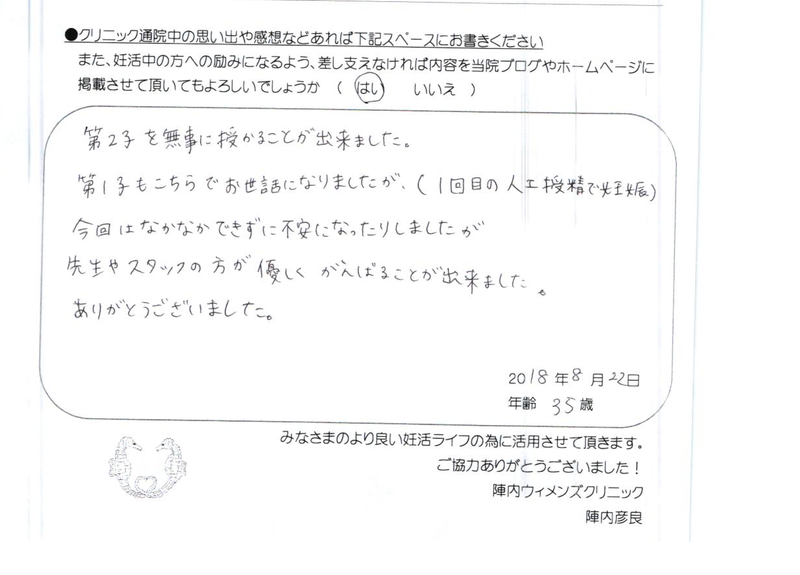 ●クリニック通院中の思い出や感想などあれば下記スペースにお書きください
また、妊活中の方への励みになるよう、差し支えなければ内容を当院ブログやホームページに
掲載させて頂いてもよろしいでしょうか （ はい　いいえ ）
第2子を無事に授かることが出来ました。
第1子もこちらでお世話になりましたが、(1回目の人工授精で妊娠)
今回はなかなかできずに不安になったりしましたが
先生やスタッフの方が優しくがんばることが出来ました。
ありがとうございました。
2018年8月22日
年齢 35歳
みなさまのより良い妊活ライフの為に活用させて頂きます。
ご協力ありがとうございました！
陣内ウィメンズクリニック
陣内彦良